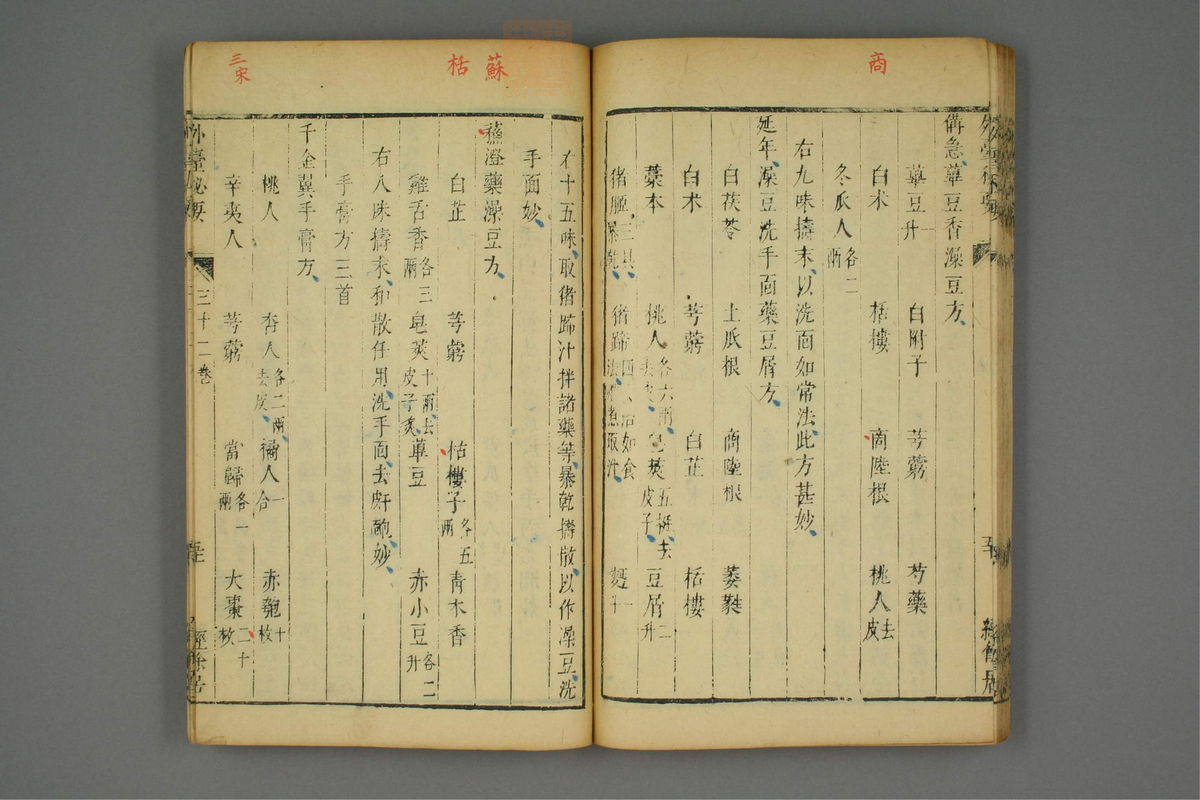 商
備急蓽豆香澡豆方
蓽豆一升 白附子 芎藭 芍藥
白术 栝樓 商陸根 桃人去皮
冬瓜人各二兩
右九味擣末以洗面如常法此方甚妙
延年澡豆洗手面藥豆屑方
白茯苓 土瓜根 商陸根 萎蕤
白术 芎藭 白芷 栝樓
藁本 桃人各六兩去皮 皂莢五挺去皮子 豆屑二升
猪胰三具暴乾 猪蹄四具治如食法煮取汁 麪一斗
蘇
栝
三宋
右十五味取猪蹄汁拌諸藥等暴乾擣散以作澡豆洗
手面妙
蘓澄藥澡豆方
白芷 芎藭 栝樓子各五兩 青木香
雞舌香各三兩 皂莢十兩去皮子炙 蓽豆 赤小豆各二升
右八味擣末和散任用洗手面去皯䵟妙
手膏方三首
千金翼手膏方
桃人 杏人各二兩去皮 橘人一合 赤匏十枚
辛夷人 芎藭 當歸各一兩 大棗二十枚
外臺秘要 三十二卷 經餘居